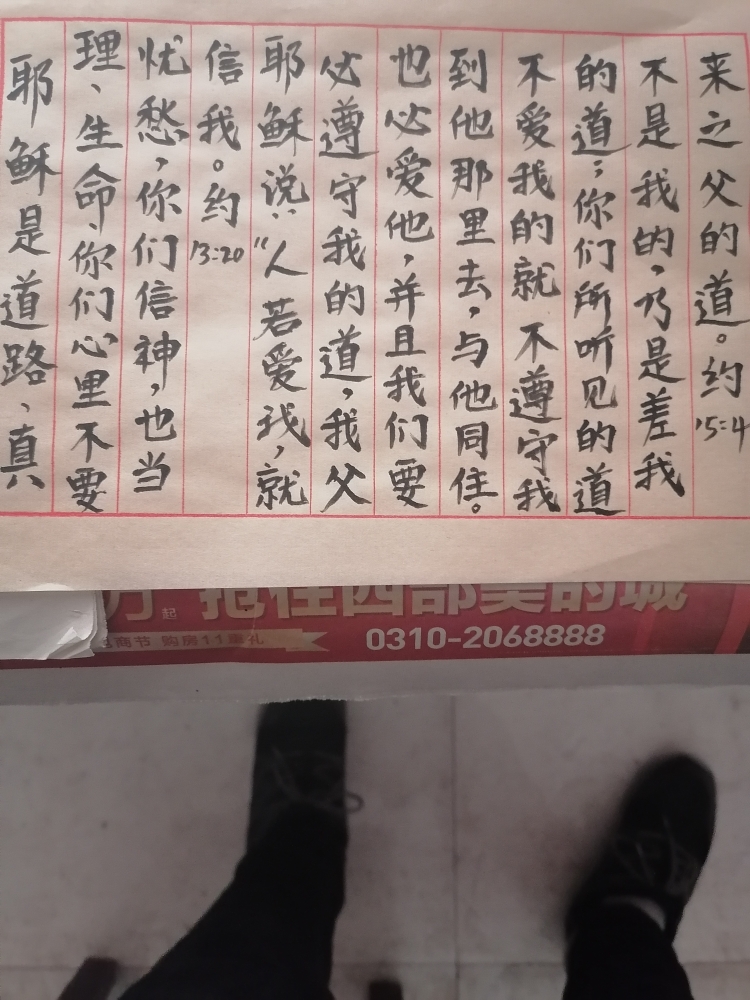 耶稣是道路、真
理、生命、你们心里不要
忧愁，你们信神，也当
信我。约13:20
耶稣说：“人若爱我，就
必遵守我的道，我父
也必爱他，并且我们要
到他那里去，与他同住。
不爱我的就不遵守我
的道；你们所听见的道
不是我的，乃是差我
来之父的道。约15:4
起 抢住西部美的城
商节 购房11重礼 0310-2068888